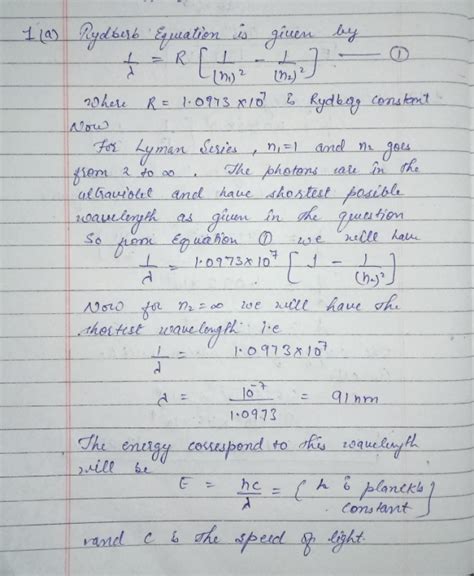 1(a) Rydberb Equation is given by
1/λ = R [ 1/(n₁)² - 1/(n₂)² ] — ①
Where R = 1.0973 × 10⁷ is Rydbegg constant
Now
For Lyman Series, n₁=1 and n₂ goes
from 2 to ∞. The photons are in the
ultraviolet and have shortest posible
wavelength as given in the question
So from Equation ① we will have
1/λ = 1.0973×10⁷ [ 1 - 1/(n₂)² ]
Now for n₂ = ∞ we will have the
shortest wavelength i.e
1/λ = 1.0973×10⁷
λ = 10⁻⁷/1.0973 = 91 nm
The energy correspond to this wavelength
will be
E = hc/λ = { h is planck's constant }
and c is the speed of light.